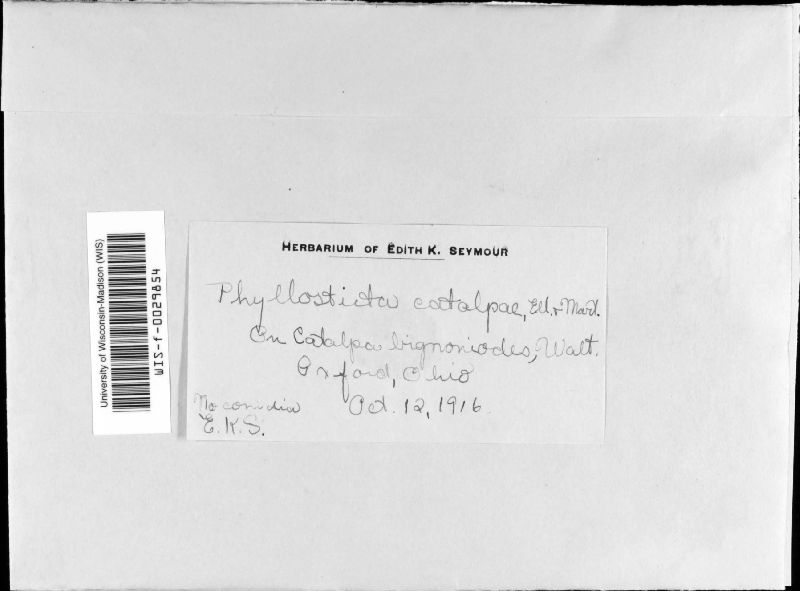 University of Wisconsin-Madison (WIS)
WIS-f-0029854
HERBARIUM OF EDITH K. SEYMOUR
Phyllosticta catalpae, Ell. & Mart.
On Catalpa bignoniodes, Walt.
Oxford, Ohio
No conidia Oct. 12, 1916.
E.K.S.